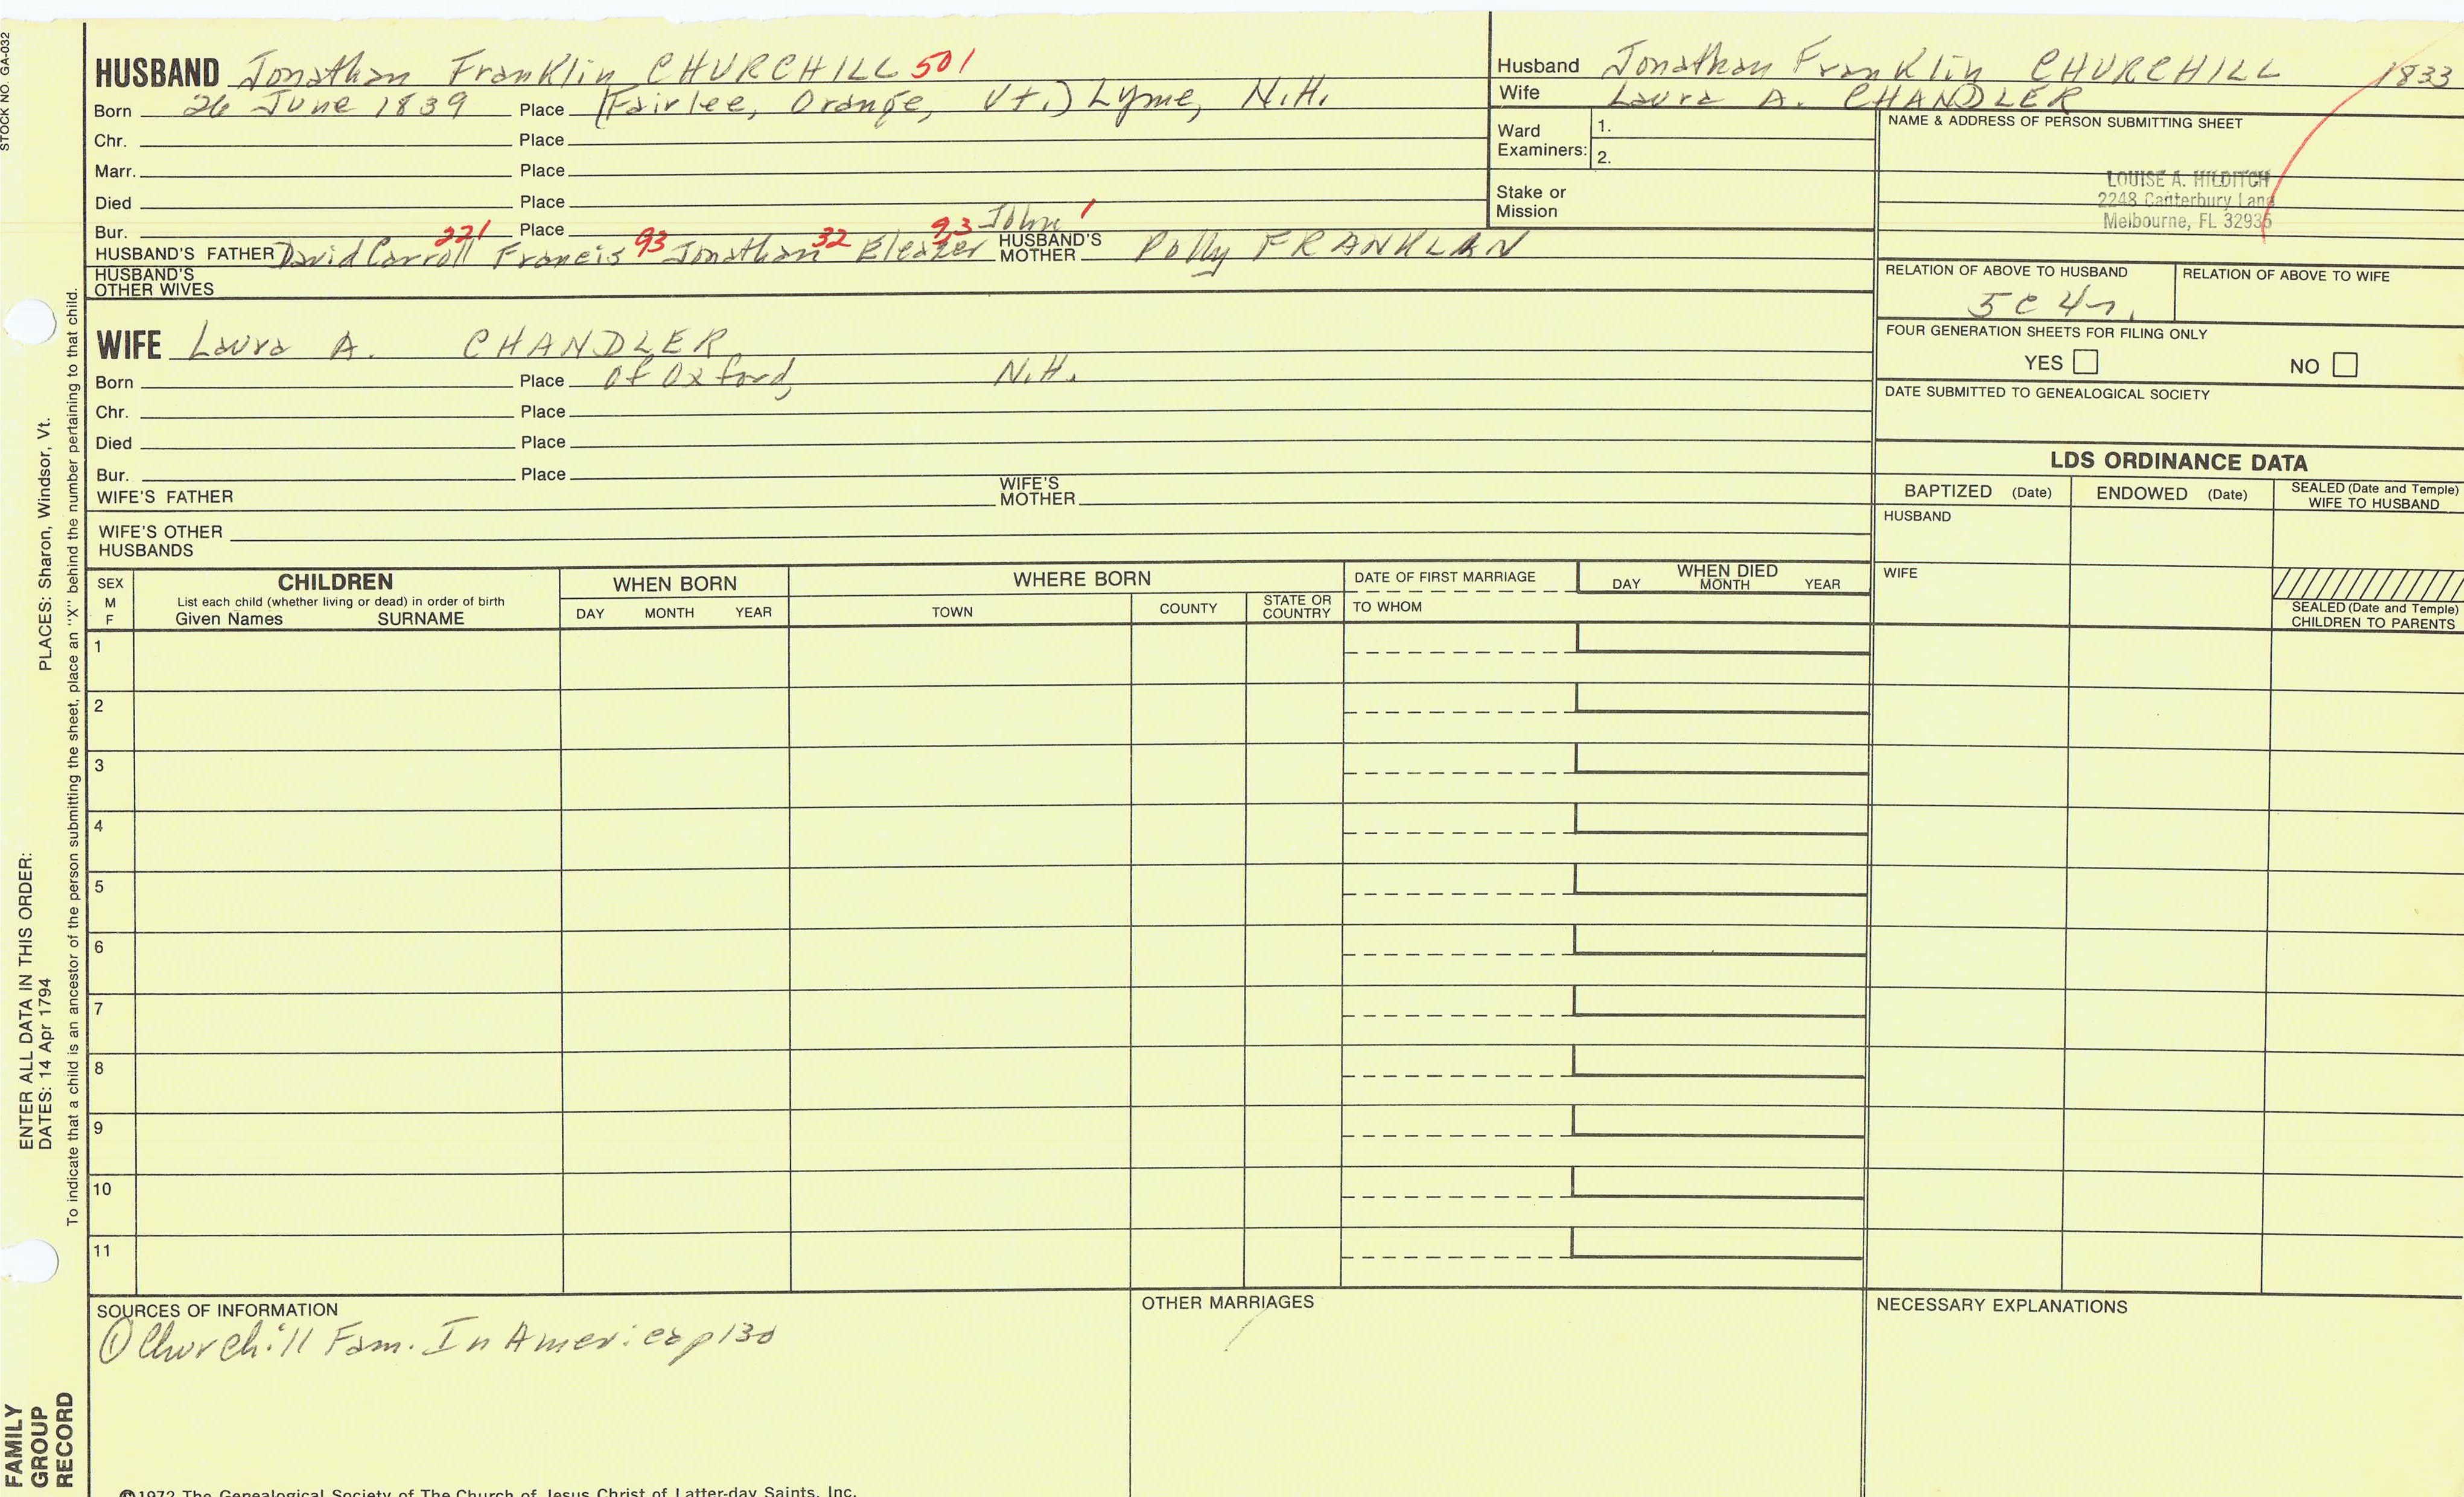 STOCK NO. GA-032
HUSBAND Jonathan Franklin CHURCHILL 501
Born 26 June 1839 Place (Fairlee, Orange, Vt.) Lyme, N.H.
Chr. Place
Marr. Place
Died Place
Bur. Place
John 1
HUSBAND'S FATHER David Carroll 221 Francis 93 Jonathan 32 Eleazer HUSBAND'S MOTHER Polly FRANKLAN
HUSBAND'S OTHER WIVES
Husband Jonathan Franklin CHURCHILL 1833
Wife Laura A. CHANDLER
Ward Examiners: 1.
2.
Stake or Mission
NAME & ADDRESS OF PERSON SUBMITTING SHEET
LOUISE A. HILDITCH
2248 Canterbury Lane
Melbourne, FL 32935
RELATION OF ABOVE TO HUSBAND
5C 4r.
RELATION OF ABOVE TO WIFE
FOUR GENERATION SHEETS FOR FILING ONLY
YES NO
DATE SUBMITTED TO GENEALOGICAL SOCIETY
WIFE Laura A. CHANDLER
Born Place of Oxford, N.H.
Chr. Place
Died Place
Bur. Place
WIFE'S FATHER WIFE'S MOTHER
WIFE'S OTHER HUSBANDS
LDS ORDINANCE DATA
BAPTIZED (Date) ENDOWED (Date) SEALED (Date and Temple) WIFE TO HUSBAND
HUSBAND
WIFE
SEALED (Date and Temple) CHILDREN TO PARENTS
SEX M F
CHILDREN
List each child (whether living or dead) in order of birth
Given Names SURNAME
WHEN BORN
DAY MONTH YEAR
WHERE BORN
TOWN COUNTY STATE OR COUNTRY
DATE OF FIRST MARRIAGE
TO WHOM
WHEN DIED
DAY MONTH YEAR
1
2
3
4
5
6
7
8
9
10
11
SOURCES OF INFORMATION
① Churchill Fam. In America p130
OTHER MARRIAGES
NECESSARY EXPLANATIONS
©1972 The Genealogical Society of The Church of Jesus Christ of Latter-day Saints, Inc.
ENTER ALL DATA IN THIS ORDER:
DATES: 14 Apr 1794 PLACES: Sharon, Windsor, Vt.
To indicate that a child is an ancestor of the person submitting the sheet, place an "X" behind the number pertaining to that child.
FAMILY
GROUP
RECORD